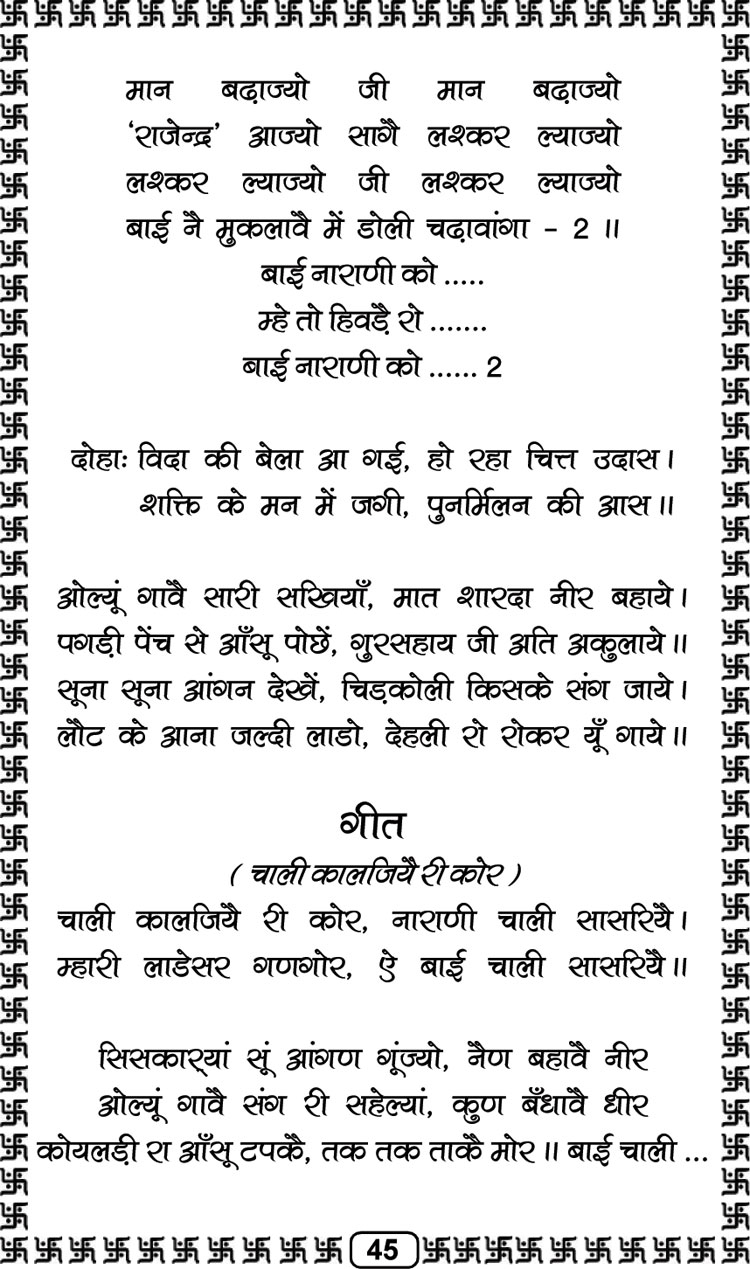 मान बढ़ाज्यो जी मान बढ़ाज्यो
‘राजेन्द्र’ आज्यो सागै लश्कर ल्याज्यो
लश्कर ल्याज्यो जी लश्कर ल्याज्यो
बाई नै मुकलावै में डोली चढ़ावांगा - 2 ॥
बाई नाराणी को .....
म्हे तो हिवड़ै रो .......
बाई नाराणी को ...... 2
दोहाः विदा की बेला आ गई, हो रहा चित्त उदास।
शक्ति के मन में जगी, पुनर्मिलन की आस॥
ओल्यूं गावै सारी सखियाँ, मात शारदा नीर बहाये।
पगड़ी पेंच से आँसू पोछें, गुरसहाय जी अति अकुलाये॥
सूना सूना आंगन देखें, चिड़कोली किसके संग जाये।
लौट के आना जल्दी लाडो, देहली रो रोकर यूँ गाये॥
गीत
( चाली कालजियै री कोर )
चाली कालजियै री कोर, नाराणी चाली सासरियै।
म्हारी लाडेसर गणगोर, ऐ बाई चाली सासरियै॥
सिसकार्‌यां सूं आंगण गूंज्यो, नैण बहावै नीर
ओल्यूं गावै संग री सहेल्यां, कुण बँधावै धीर
कोयलड़ी रा आँसू टपकै, तक तक ताकै मोर॥ बाई चाली ...
45